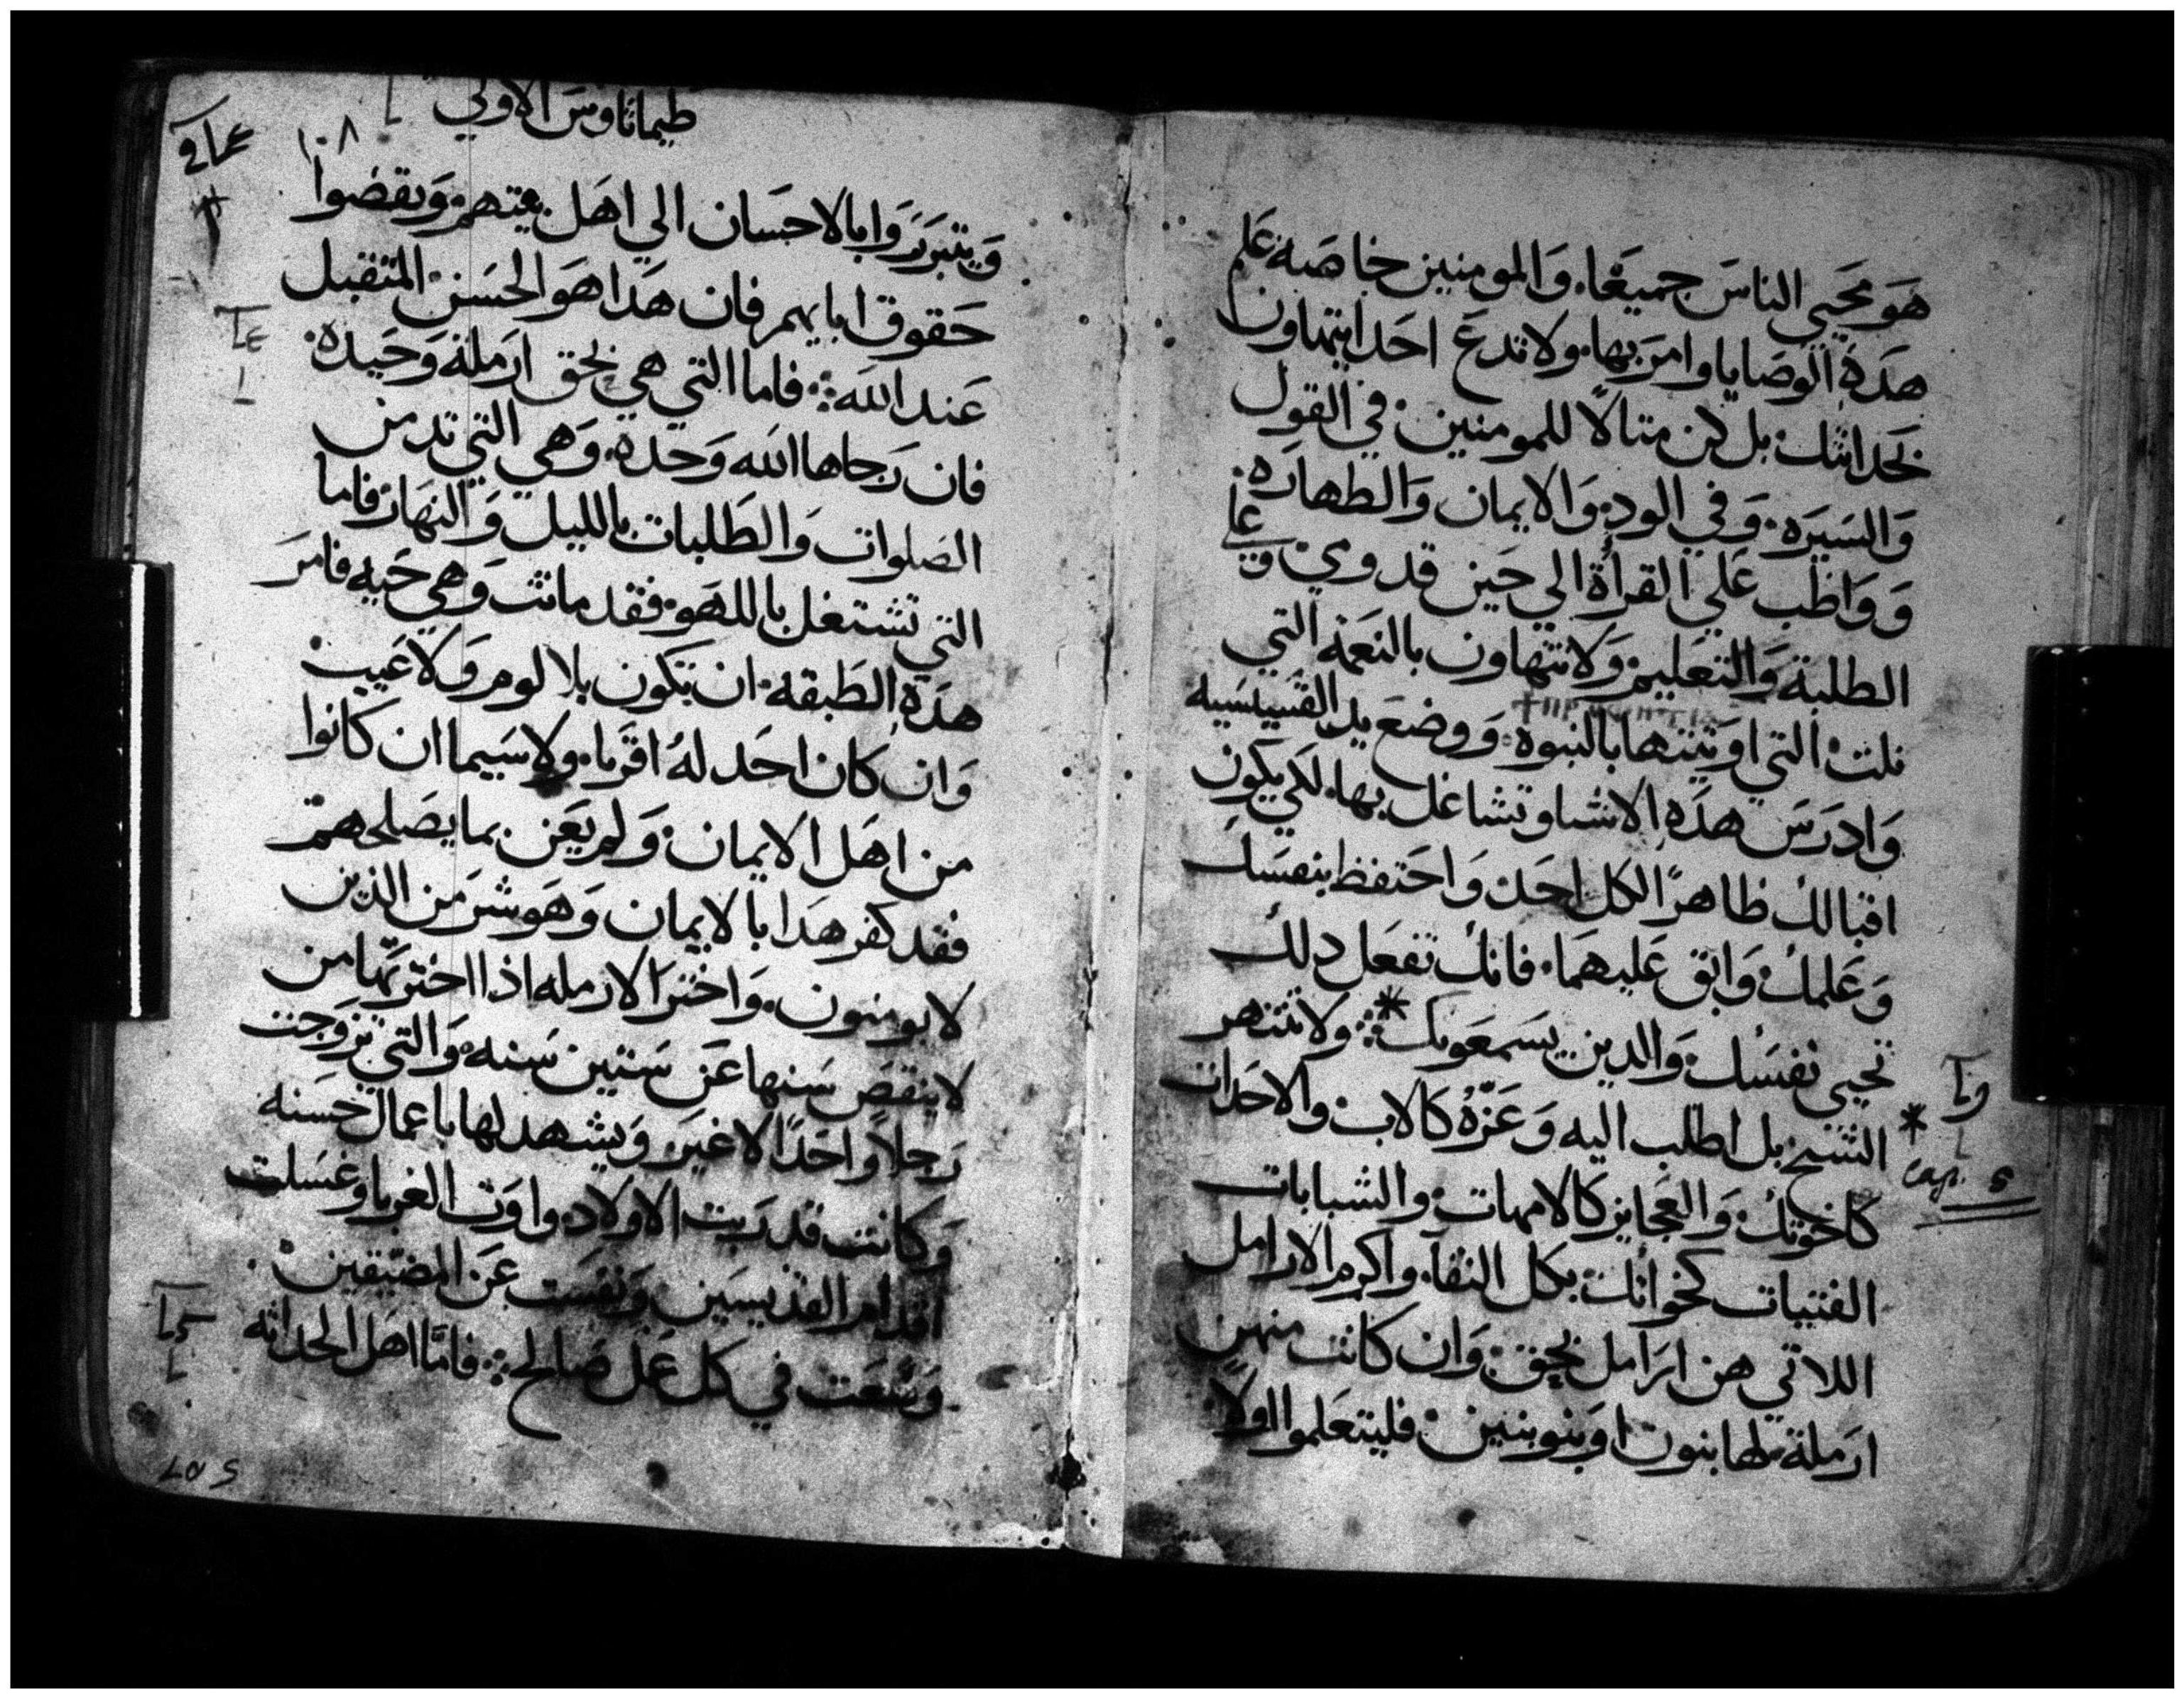 هو محيي الناس جميعا، والمومنين خاصه علم
هده الوصايا وامر بها، ولا تدع احدا يتهاون
بحداثتك، بل كن مثالاً للمومنين في القول
والسيره، وفي الود، والايمان والطهاره،
وواظب على القرأة الي حين قدومي وعلي
الطلبة والتعليم ولا تتهاون بالنعمه التي
نلت، التي اوتيتها بالنبوه، ووضع يد القسيسيه
وادرس هذه الاشيا وتشاغل بها، لكي يكون
اقبالك ظاهرًا لكل احد، واحتفظ بنفسك
وعلمك، واتق عليهما، فانك تفعل دلك
تحيي نفسك، والدين يسمعونك * ولا تنتهر
الشيخ بل اطلب اليه وعزّه كالاب، والاحداث
كاخوتك، والعجايز كالامهات، والشبابات
الفتيات كخواتك، بكل النقا، واكرم الارامل
اللاتي هن ارامل بحق، وان كانت منهن
ارملة لها بنون او بنو بنين، فليتعلموا اولا،
وما
* cap. 5
طيماتاوس الاولي
١٠٨
ويتبرروا بالاحسان الي اهل بيتهم، ويقضوا
حقوق ابايهم، فان هدا هو الحسن المتقبل
عند الله، فاما التي هي بحق ارملة وحيده،
فان رجاها الله وحده، وهي التي تدمن
الصلوات والطلبات بالليل والنهار فاما
التي تشتغل باللهو، فقد ماتت وهي حيه فامر
هده الطبقه، ان تكون بلا لوم ولا عيب،
وان كان احد له اقربا، ولا سيما ان كانوا
من اهل الايمان، ولم يعن بما يصلحهم
فقد كفر هدا بالايمان وهو شر من الذين
لا يومنون، واختر الارمله اذا اخترتها من
لا ينقص سنها عن ستين سنه، والتي تزوجت
رجلاً واحدًا لا غير ويشهد لها باعمال حسنه
وكانت قد ربت الاولاد، واوت الغربا وغسلت
اقدام القديسين ونفست عن المضيقين،
وسعت في كل عمل صالح، فامّا اهل الحداثه